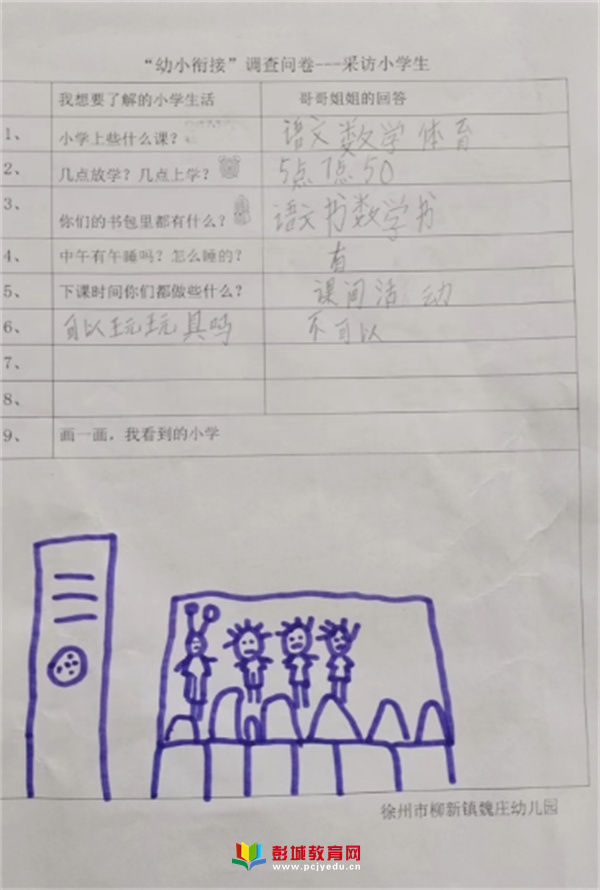 “幼小衔接”调查问卷---采访小学生
我想要了解的小学生活 哥哥姐姐的回答
1、 小学上些什么课？ 语文 数学 体育
2、 几点放学？几点上学？ 5点 7点50
3、 你们的书包里都有什么？ 语文书数学书
4、 中午有午睡吗？怎么睡的？ 有
5、 下课时间你们都做些什么？ 课间活动
6、 可以玩玩具吗 不可以
7、
8、
9、 画一画，我看到的小学
徐州市柳新镇魏庄幼儿园
彭城教育网
www.pcjyedu.cn